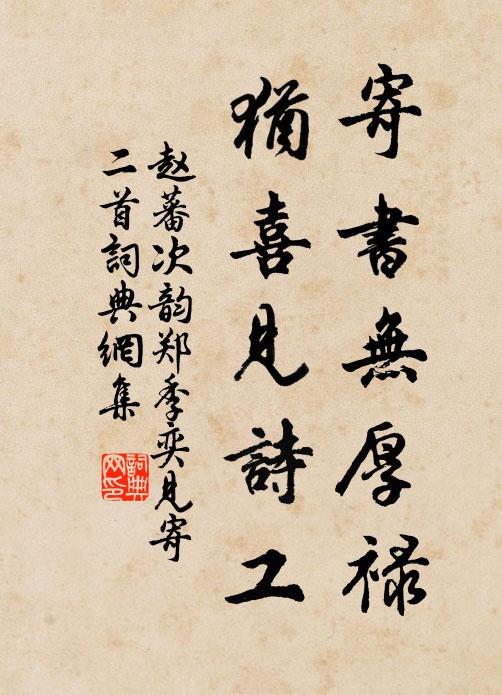 寄書無厚禄
猶喜見詩工
赵蕃次韵郑季奕見寄
二首詞典網集
詞典网印